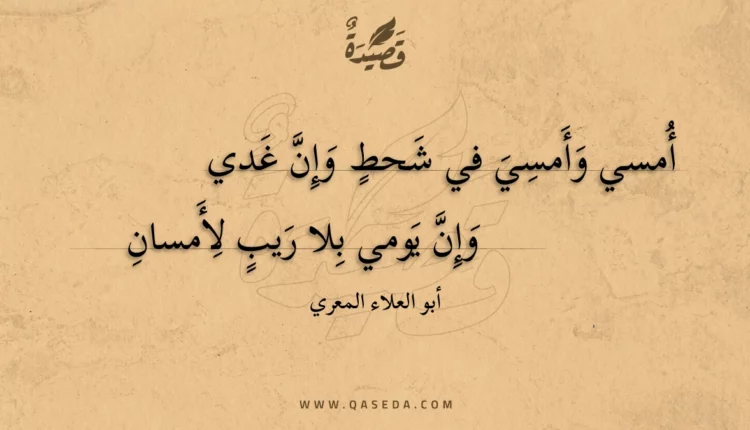 قَصِيدَةٌ
أُمسي وَأَمسِيَ في شَحطٍ وَإِنَّ غَدي
وَإِنَّ يَومي بِلا رَيبٍ لِأَمسانِ
أبو العلاء المعري
WWW.QASEDA.COM